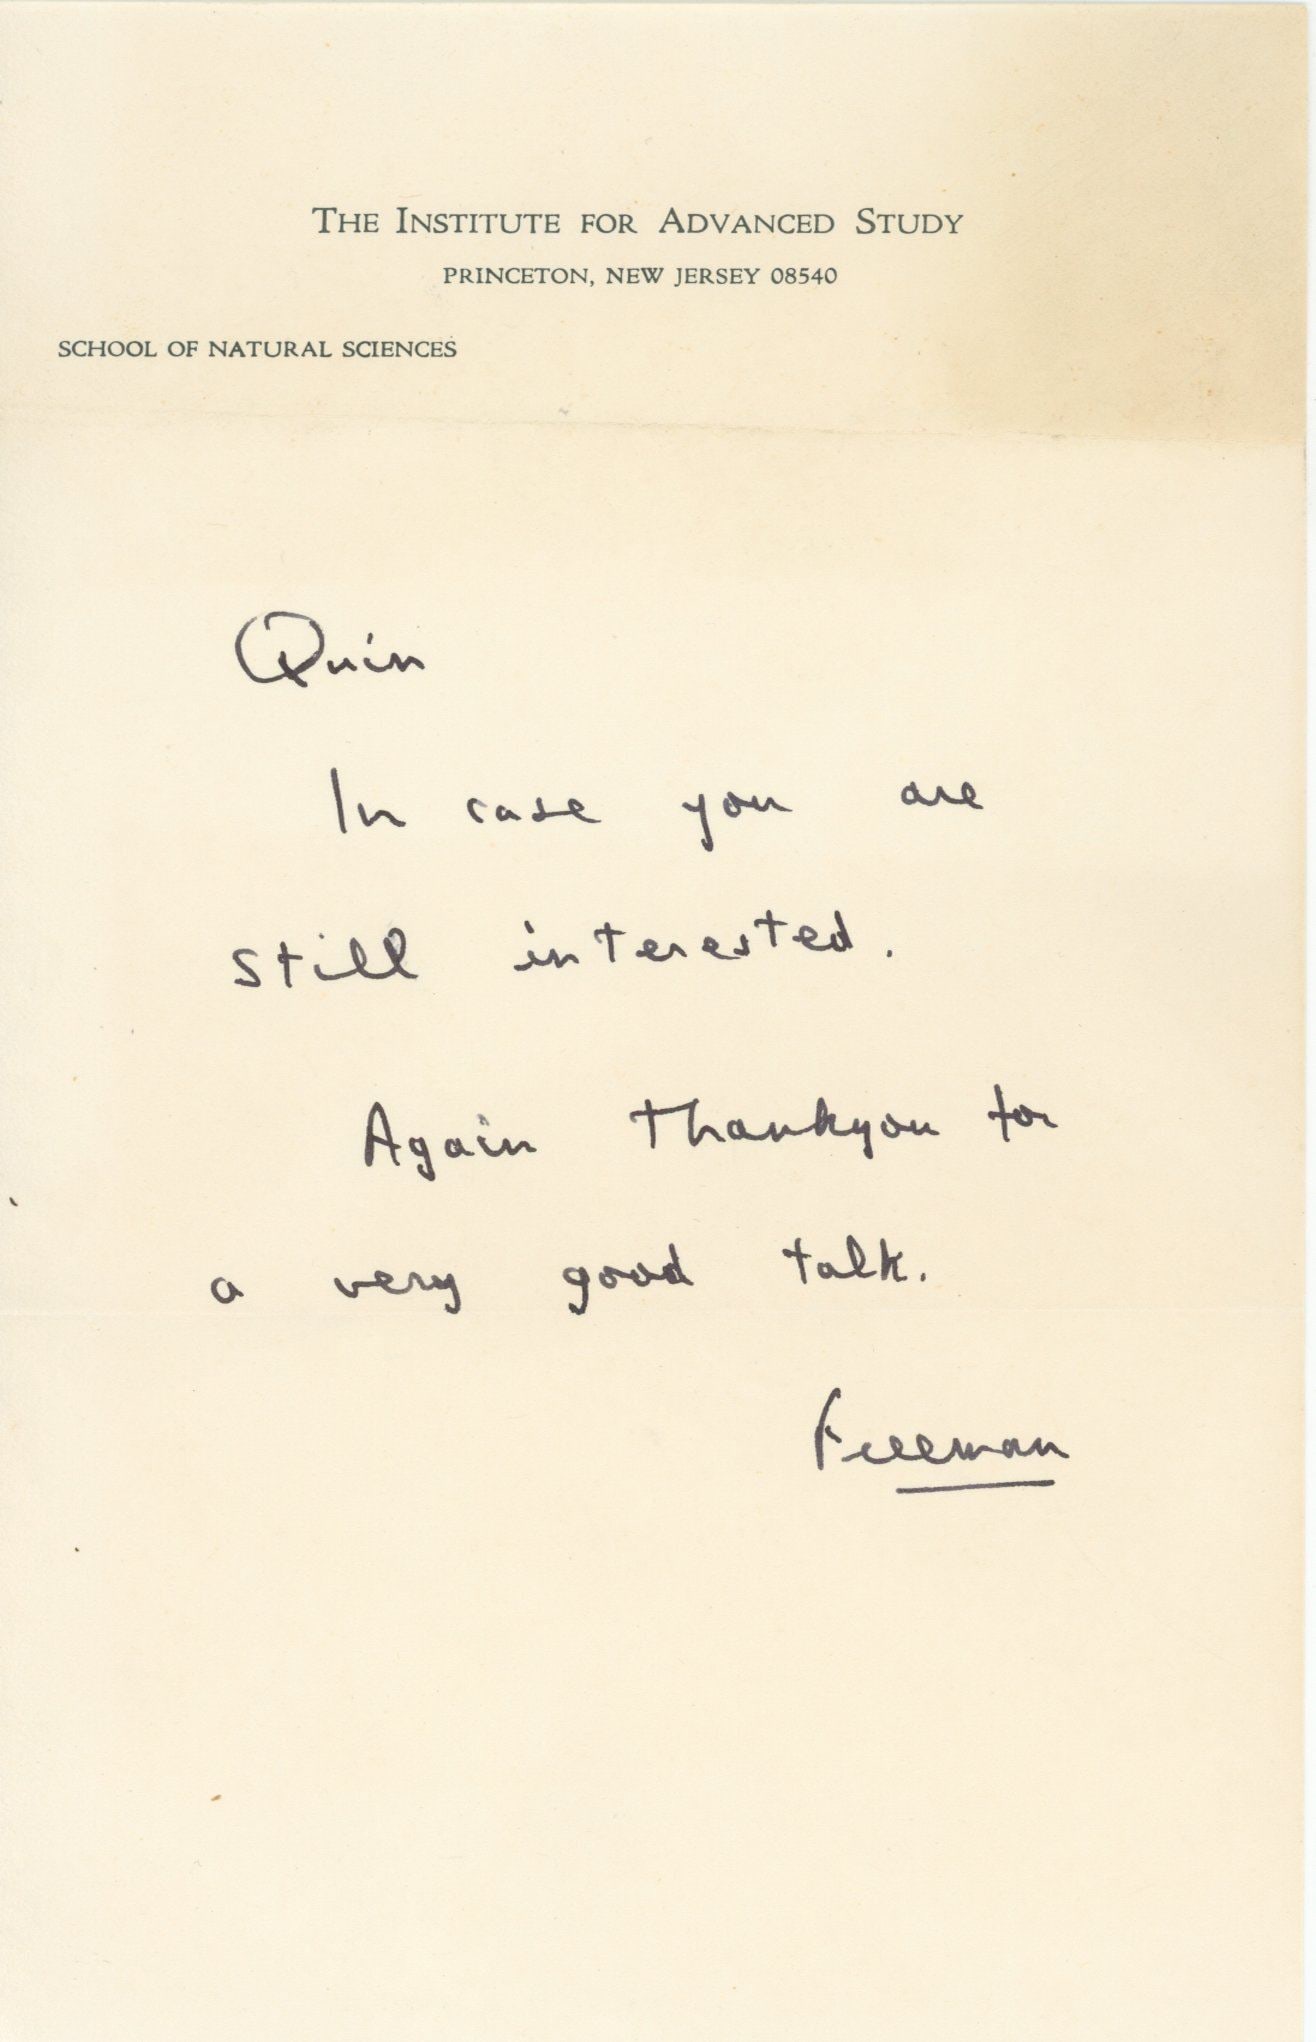 THE INSTITUTE FOR ADVANCED STUDY
PRINCETON, NEW JERSEY 08540
SCHOOL OF NATURAL SCIENCES
Quin
In case you are
still interested.
Again thankyou for
a very good talk.
Freeman